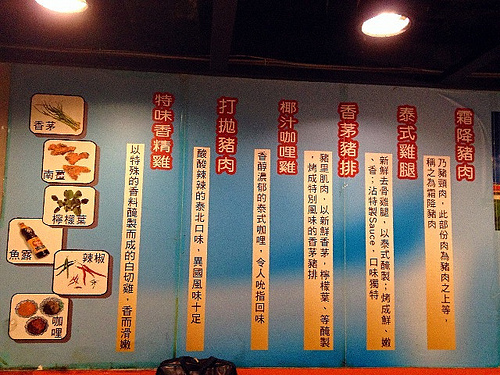 霜降豬肉
乃豬頸肉，此部份肉為豬肉之上等，
稱之為霜降豬肉
泰式雞腿
新鮮去骨雞腿，以泰式醃製；烤成鮮、嫩
、香；沾特製Sauce，口味獨特
香茅豬排
豬里肌肉，以新鮮香茅，檸檬葉、等醃製
，烤成特別風味的香茅豬排
椰汁咖哩雞
香醇濃郁的泰式咖哩，令人吮指回味
打拋豬肉
酸酸辣辣的泰北口味，異國風味十足
特味香精雞
以特殊的香料醃製而成的白切雞，香而滑嫩
香茅
南薑
檸檬葉
魚露
辣椒
咖哩